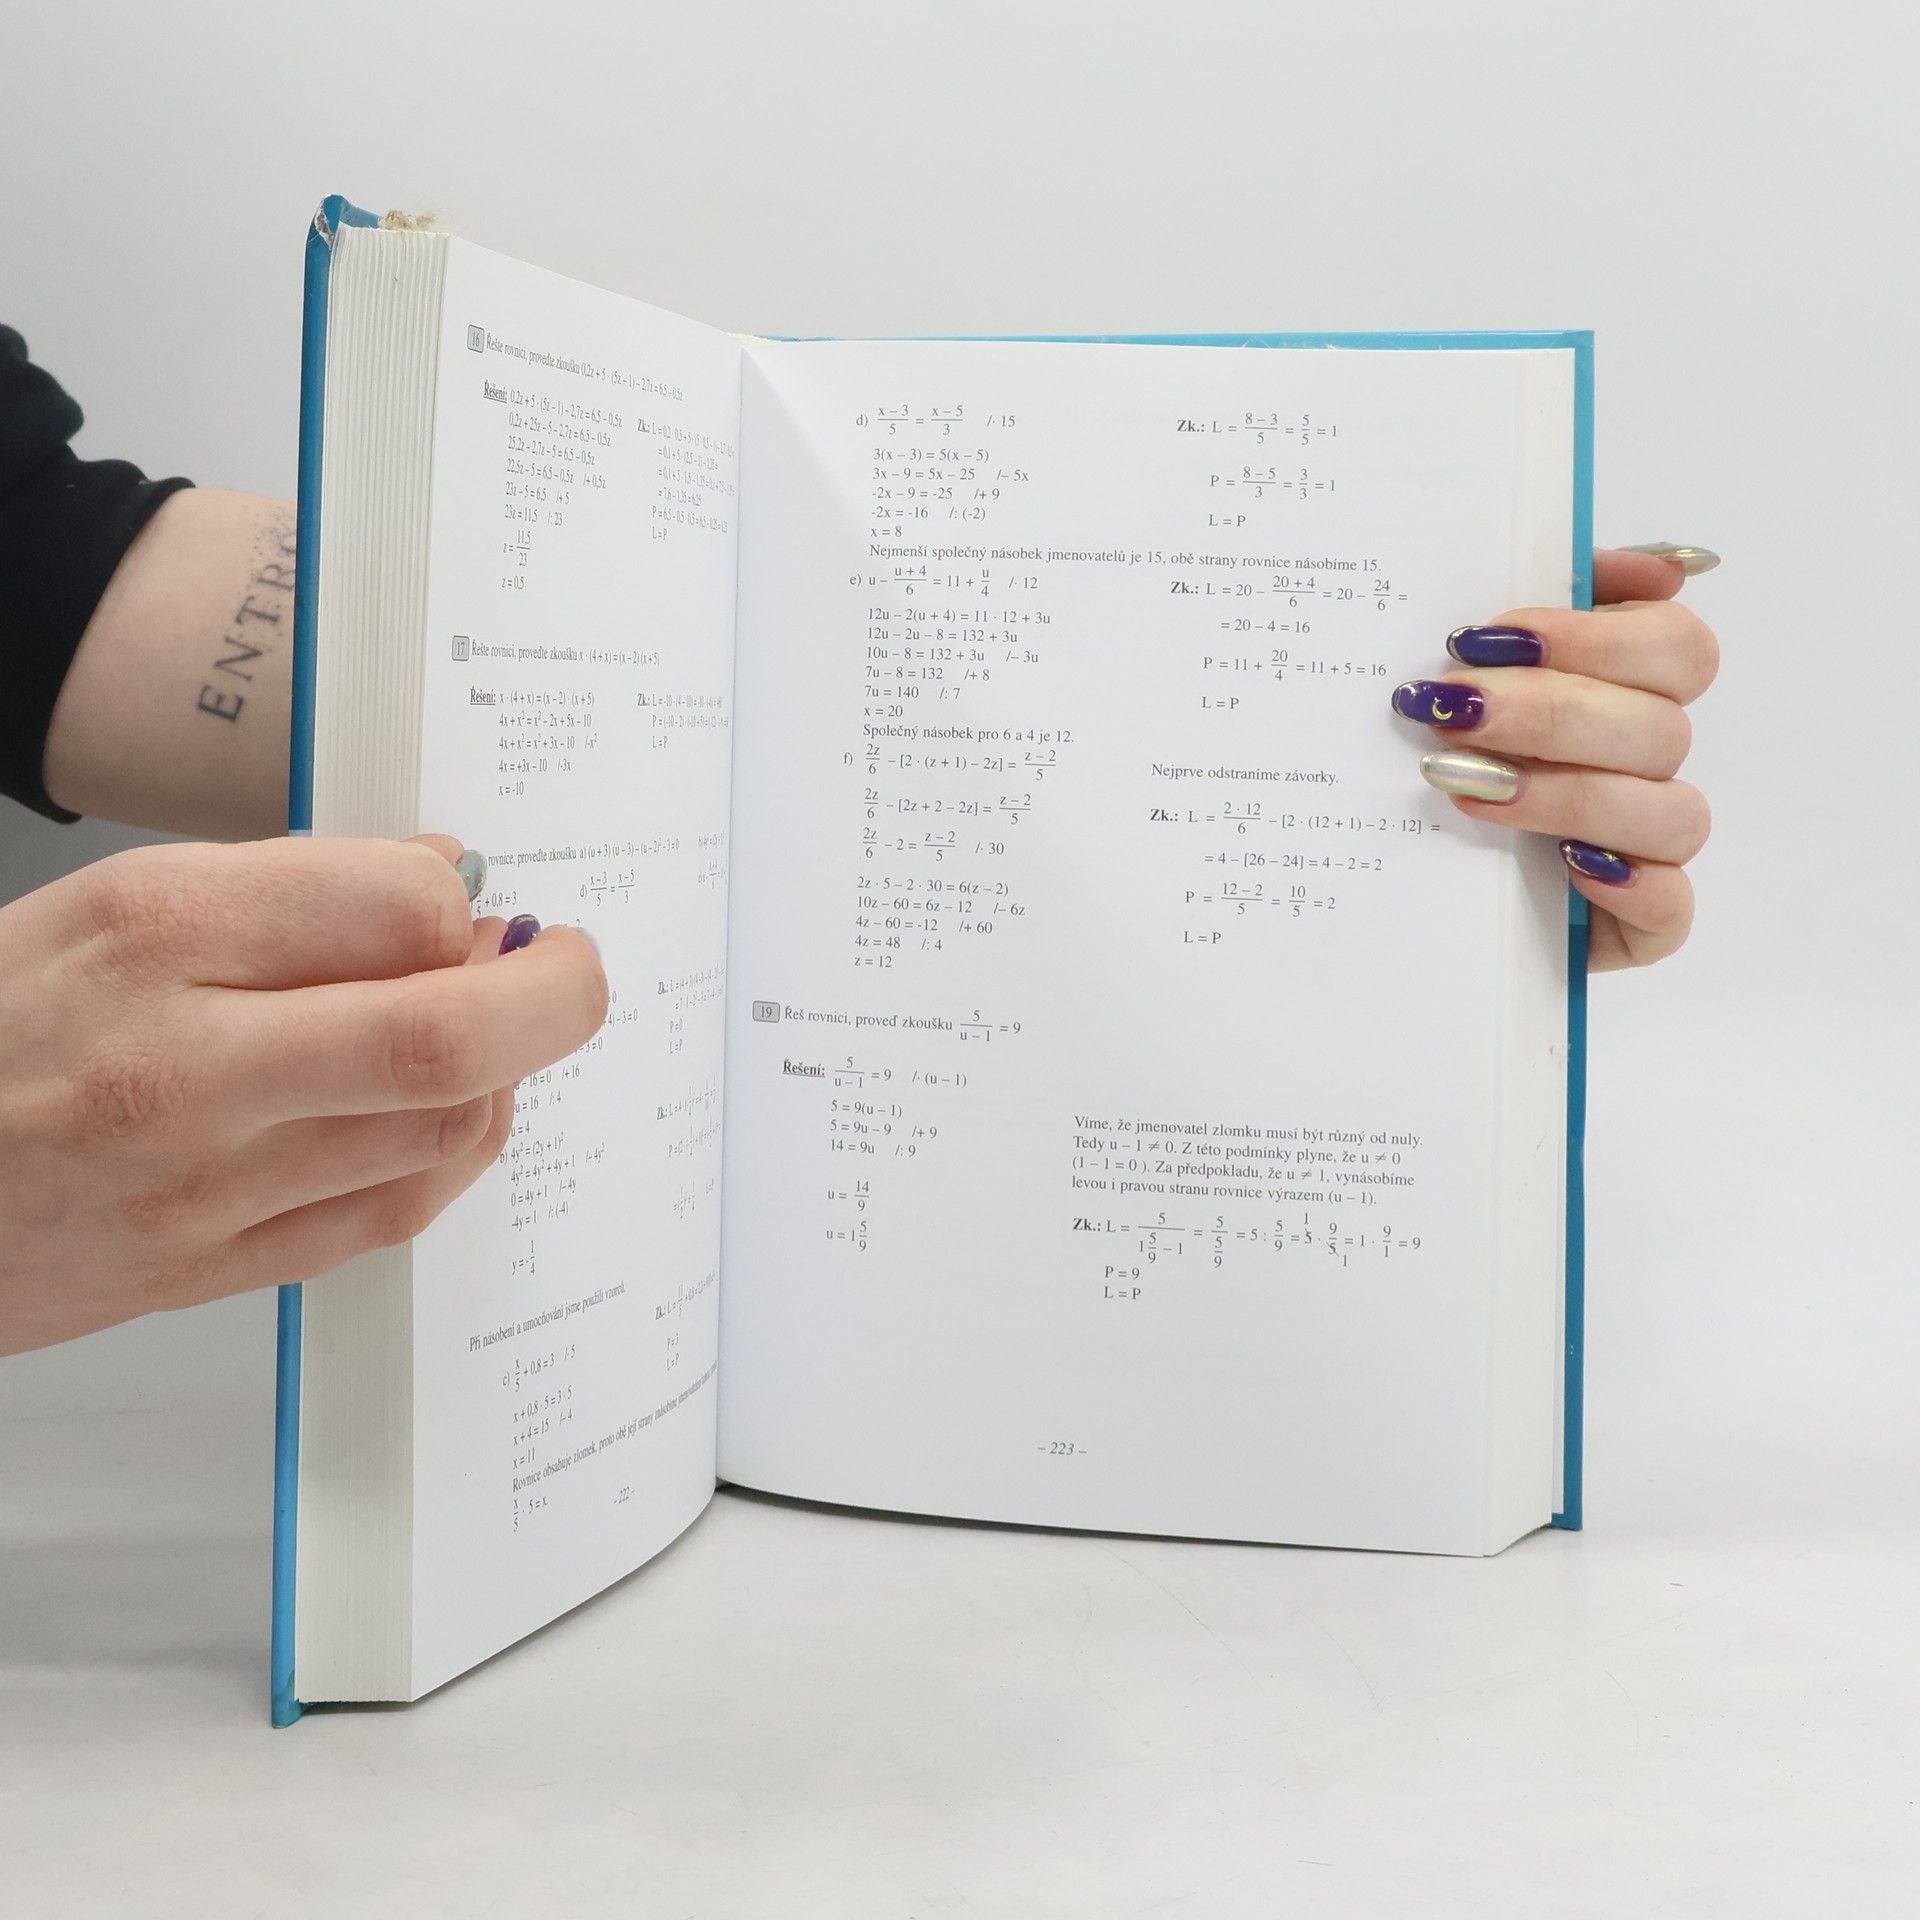 ENTRO
16 Řešte rovnici, proveďte zkoušku 0,2z + 5 · (5z – 1) – 2,7z = 6,5 – 0,5z
Řešení: 0,2z + 5 · (5z – 1) – 2,7z = 6,5 – 0,5z
0,2z + 25z – 5 – 2,7z = 6,5 – 0,5z
25,2z – 2,7z – 5 = 6,5 – 0,5z
22,5z – 5 = 6,5 – 0,5z /+ 0,5z
23z – 5 = 6,5 /+ 5
23z = 11,5 /: 23
z = 11,5/23
z = 0,5
= 7,6 – 1,35 = 6,25
L = P
17 Řešte rovnici, proveďte zkoušku x · (4 + x) = (x – 2) (x + 5)
Řešení: x · (4 + x) = (x – 2) · (x + 5)
4x + x² = x² – 2x + 5x – 10
4x + x² = x² + 3x – 10 /-x²
4x = +3x – 10 /-3x
x = -10
L = P
rovnice, proveďte zkoušku a) (u + 3) (u – 3) – (u – 2)² – 3 = 0
+ 0,8 = 3
d) x – 3/5 = x – 5/3
– 16 = 0 /+ 16
u = 16 /: 4
u = 4
P = 0
L = P
b) 4y² = (2y + 1)²
4y² = 4y² + 4y + 1 /– 4y²
0 = 4y + 1 /– 4y
-4y = 1 /: (-4)
y = - 1/4
Při násobení a umocňování jsme použili vzorců.
c) x/5 + 0,8 = 3 /· 5
x + 0,8 · 5 = 3 · 5
x + 4 = 15 /– 4
x = 11
P = 3
L = P
Rovnice obsahuje zlomek, proto obě její strany násobíme
x/5 · 5 = x.
- 222 -
d) x – 3/5 = x – 5/3 /· 15
3(x – 3) = 5(x – 5)
3x – 9 = 5x – 25 /– 5x
-2x – 9 = -25 /+ 9
-2x = -16 /: (-2)
x = 8
Zk.: L = 8 – 3/5 = 5/5 = 1
P = 8 – 5/3 = 3/3 = 1
L = P
Nejmenší společný násobek jmenovatelů je 15, obě strany rovnice násobíme 15.
e) u – u + 4/6 = 11 + u/4 /· 12
12u – 2(u + 4) = 11 · 12 + 3u
12u – 2u – 8 = 132 + 3u
10u – 8 = 132 + 3u /– 3u
7u – 8 = 132 /+ 8
7u = 140 /: 7
x = 20
Zk.: L = 20 – 20 + 4/6 = 20 – 24/6 =
= 20 – 4 = 16
P = 11 + 20/4 = 11 + 5 = 16
L = P
Společný násobek pro 6 a 4 je 12.
f) 2z/6 – [2 · (z + 1) – 2z] = z – 2/5
2z/6 – [2z + 2 – 2z] = z – 2/5
2z/6 – 2 = z – 2/5 /· 30
2z · 5 – 2 · 30 = 6(z – 2)
10z – 60 = 6z – 12 /– 6z
4z – 60 = -12 /+ 60
4z = 48 /: 4
z = 12
Nejprve odstraníme závorky.
Zk.: L = 2 · 12/6 – [2 · (12 + 1) – 2 · 12] =
= 4 – [26 – 24] = 4 – 2 = 2
P = 12 – 2/5 = 10/5 = 2
L = P
19 Řeš rovnici, proveď zkoušku 5/u – 1 = 9
Řešení: 5/u – 1 = 9 /· (u – 1)
5 = 9(u – 1)
5 = 9u – 9 /+ 9
14 = 9u /: 9
u = 14/9
u = 1 5/9
Víme, že jmenovatel zlomku musí být různý od nuly.
Tedy u – 1 ≠ 0. Z této podmínky plyne, že u ≠ 0
(1 – 1 = 0 ). Za předpokladu, že u ≠ 1, vynásobíme
levou i pravou stranu rovnice výrazem (u – 1).
Zk.: L = 5/1 5/9 – 1 = 5/5/9 = 5 : 5/9 = 5 · 9/5 = 1 · 9/1 = 9
P = 9
L = P
– 223 –